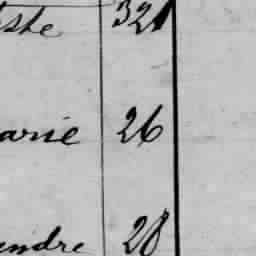 iste 321
arie 26
andre 28